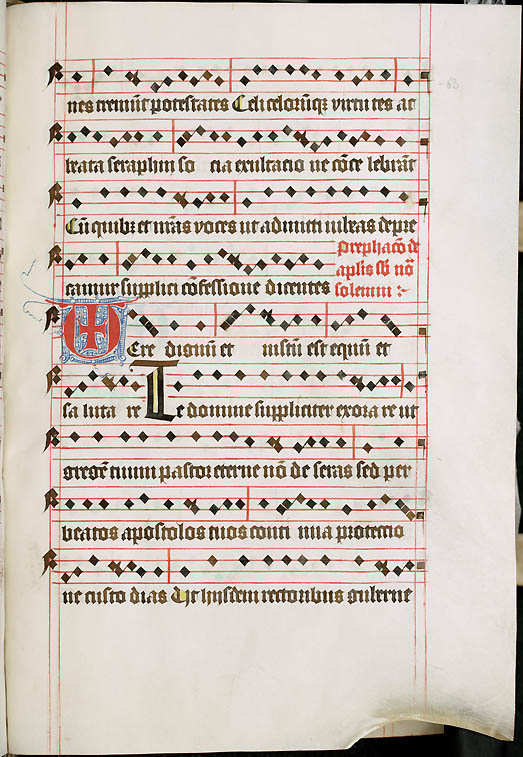 nes tremūt potestates Celi celorūqꝫ virtutes ac
beata seraphin so cia exultacio ne cōce lebrāt
Cū quibꝫ et nr̄as voces ut admitti iubeas depre
camur supplici cōfessione dicentes
Prephacō de
aplis sb nō
solenni
Vere dignū et iustū est equū et
salutare Te domine suppliciter exorare ut
gregē tuum pastor eterne nō deseras sed per
beatos apostolos tuos conti nua protectio
ne custodias Ut hijsdem rectoribus guberne
63